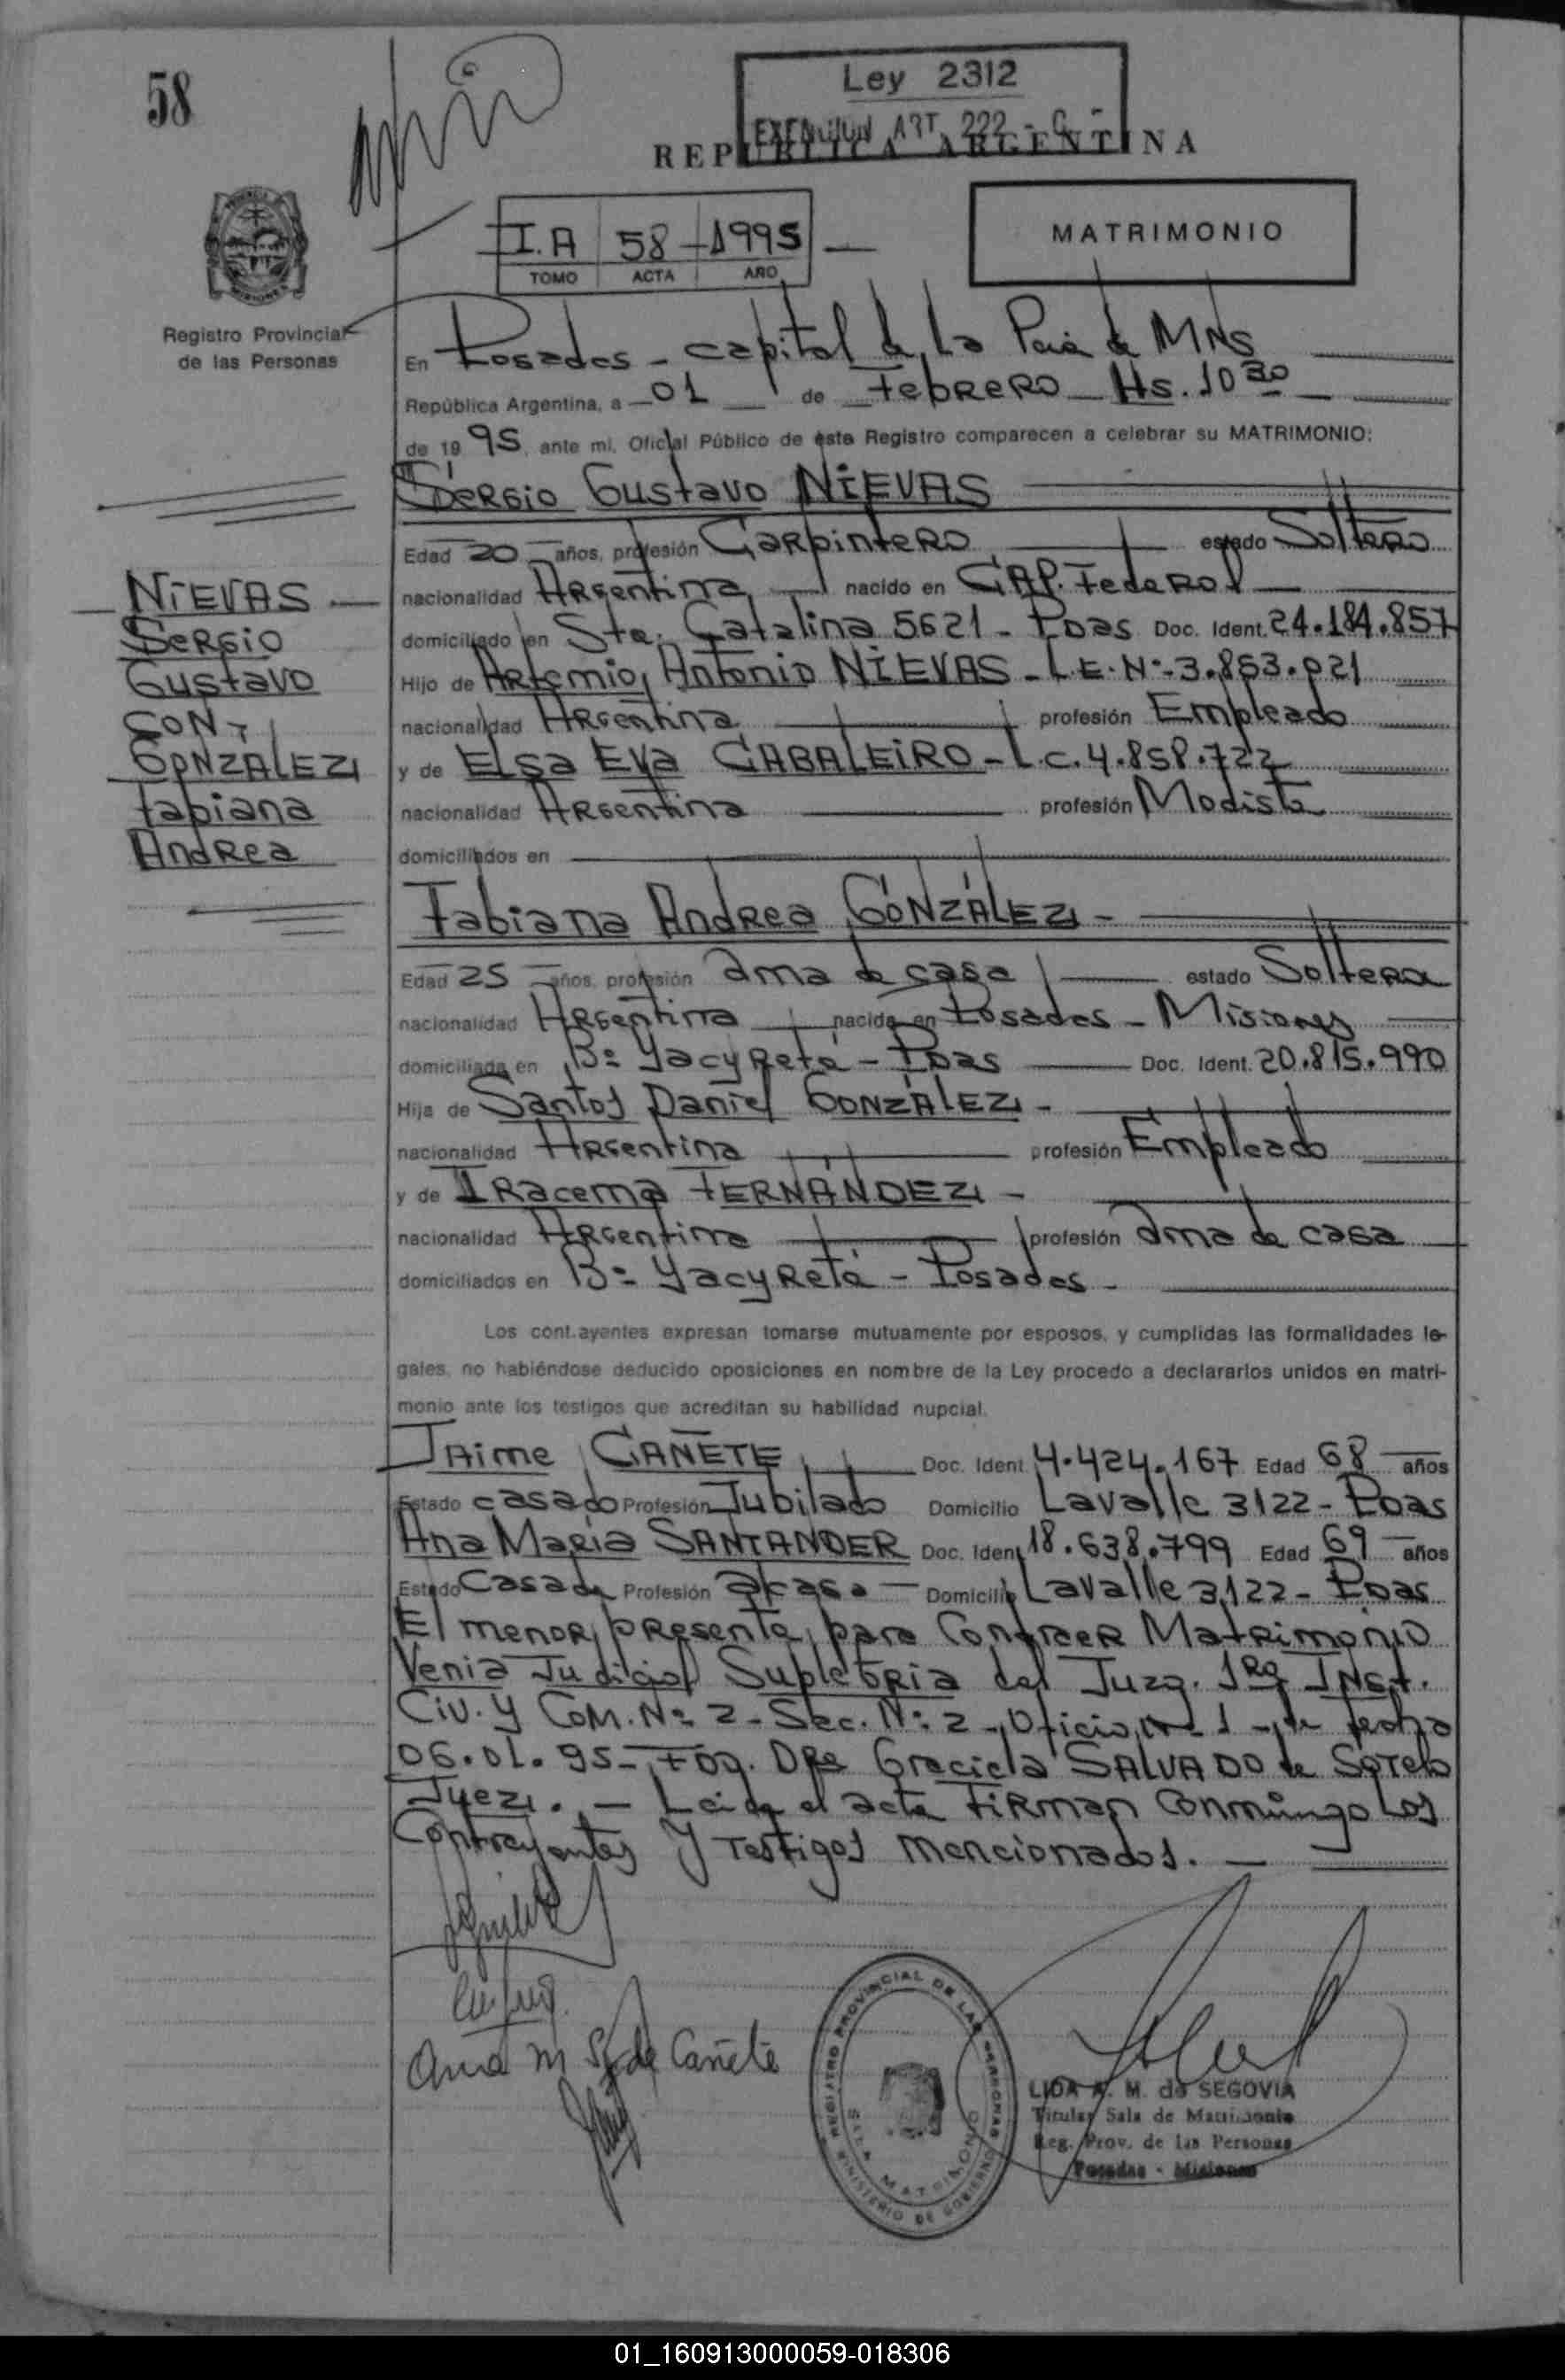 58
Ley 2312
EXENCION ART. 222 - C -
REPUBLICA ARGENTINA
I.A 58 - 1995
TOMO ACTA AÑO
MATRIMONIO
Registro Provincial
de las Personas
En Posadas - capital de La Pcia de MNS
República Argentina, a 01 de Febrero Hs. 10 30
de 1995, ante mi, Oficial Público de este Registro comparecen a celebrar su MATRIMONIO:
Sergio Gustavo NIEVAS
Edad 20 años, profesión Carpintero estado Soltero
nacionalidad Argentina nacido en CAP. Federal
domiciliado en Sta. Catalina 5621 - Pdas Doc. Ident. 24.184.857
Hijo de Artemio Antonio NIEVAS - L.E. Nº - 3.853.021
nacionalidad Argentina profesión Empleado
y de Elsa Eva CABALEIRO - L.C. 4.858.722
nacionalidad Argentina profesión Modista
domiciliados en
NIEVAS
Sergio
Gustavo
CON
GONZALEZ
Fabiana
Andrea
Fabiana Andrea GÓNZÁLEZ -
Edad 25 años, profesión ama de casa estado Soltera
nacionalidad Argentina nacida en Posadas - Misiones
domiciliada en Bº Yacyretá - Pdas Doc. Ident. 20.815.990
Hija de Santos Daniel GONZÁLEZ -
nacionalidad Argentina profesión Empleado
y de Iracema FERNÁNDEZ -
nacionalidad Argentina profesión ama de casa
domiciliados en Bº Yacyretá - Posadas -
Los contrayentes expresan tomarse mutuamente por esposos, y cumplidas las formalidades le-
gales, no habiéndose deducido oposiciones en nombre de la Ley procedo a declararlos unidos en matri-
monio ante los testigos que acreditan su habilidad nupcial.
Jaime CAÑETE Doc. Ident 4.424.167 Edad 68 años
Estado casado Profesión Jubilado Domicilio Lavalle 3122 - Pdas
Ana Maria SANTANDER Doc. Ident 18.638.799 Edad 69 años
Estado Casada Profesión acasa Domicilio Lavalle 3122 - Pdas
El menor presenta para Contraer Matrimonio
Venia Judicial Supletoria del Juzg. 1ra Inst.
Civ. y Com. Nº 2 - Sec. Nº 2 - Oficio Nº 1 - de fecha
06.01.95 - Fdo. Dra Graciela SALVADO de Sotelo
Juez. - Leida el acta Firman Conmingo Los
Contrayentes y Testigos mencionados. -
Ana M S de Cañete
REGISTRO PROVINCIAL DE LAS PERSONAS
SALA MATRIMONIO
MINISTERIO DE GOBIERNO
LIDA A. M. de SEGOVIA
Titular Sala de Matrimonio
Reg. Prov. de las Personas
Posadas - Misiones
01_160913000059-018306